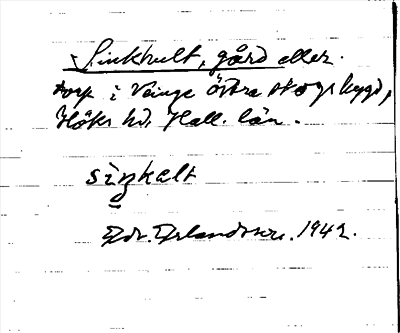 Sinkhult, gård eller
torp i Veinge östra skogsbygd,
Höks hd, Hall. län.
siŋkalt
Edv. Erlandsson. 1942.